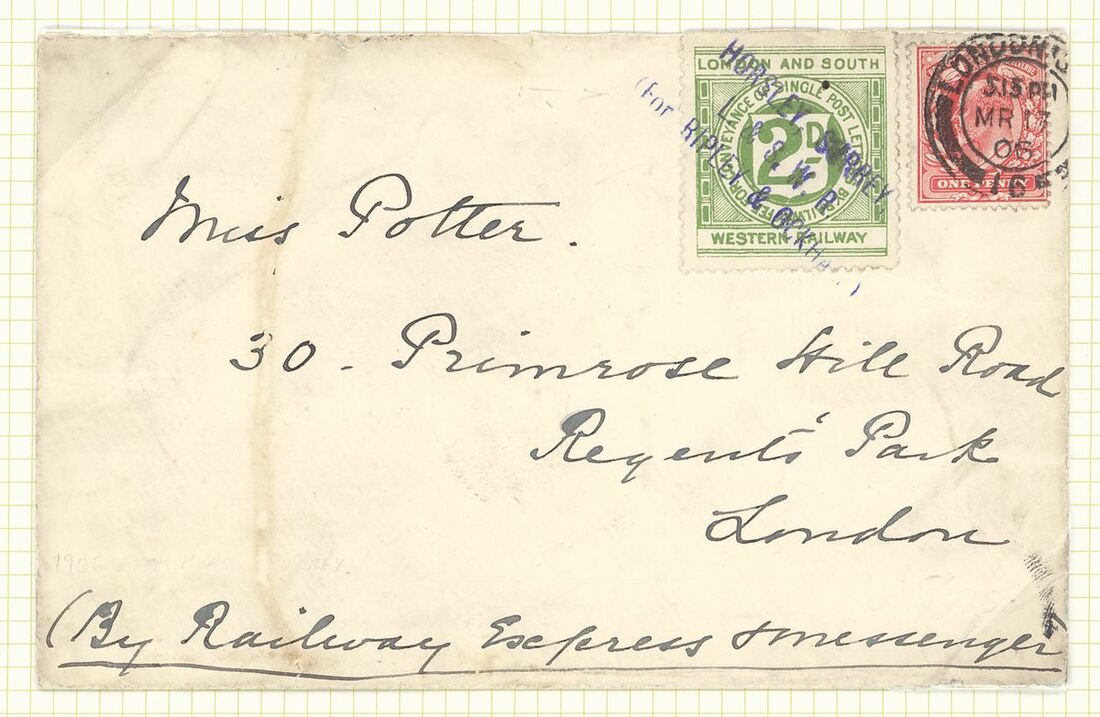 LONDON AND SOUTH
CONVEYANCE OF SINGLE POST LETTERS BY RAILWAY
2D
WESTERN RAILWAY
HORSLEY SURREY
L. & S. W. R.
(For RIPLEY & OCKHAM)
ONE PENNY
LONDON
5.15 PM
MR 17
06
Miss Potter.
30 - Primrose Hill Road
Regent's Park
London
1906
(By Railway Express & messenger